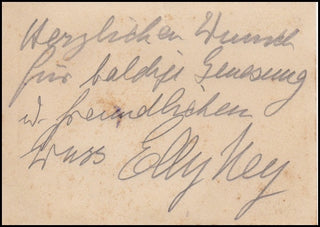 Herzlichen Wunsch
für baldige Genesung
u. freundlichen
Gruss Elly Ney